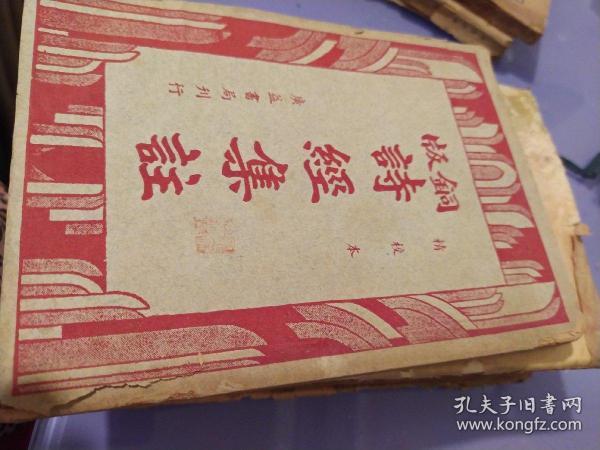 精校本
銅版
詩經集註
廣益書局刊行
孔夫子旧书网
www.kongfz.com